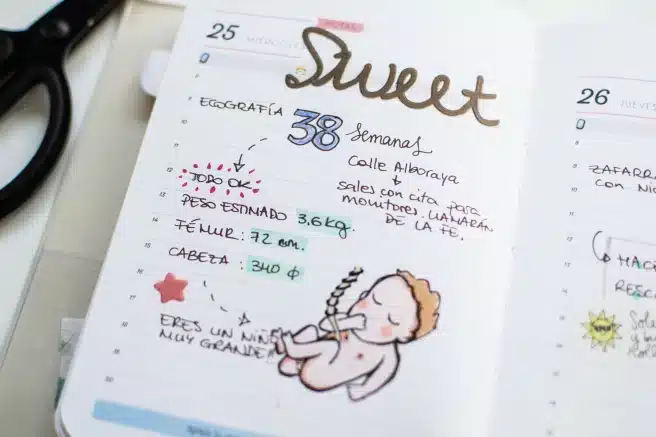 NOTAS
25 MIÉRCOLES
Sweet
ECOGRAFÍA 38 Semanas
Calle Alboraya
TODO OK
sales con cita para
monitores. LLAMARÁN
DE LA FE.
PESO ESTIMADO 3,6 kg.
FÉMUR: 72 mm.
CABEZA: 340 ф
ERES UN NIÑO
MUY GRANDE!!
26 JUEVES
ZAFARRA
con Ni
HACE
RESC
Sola
y bu